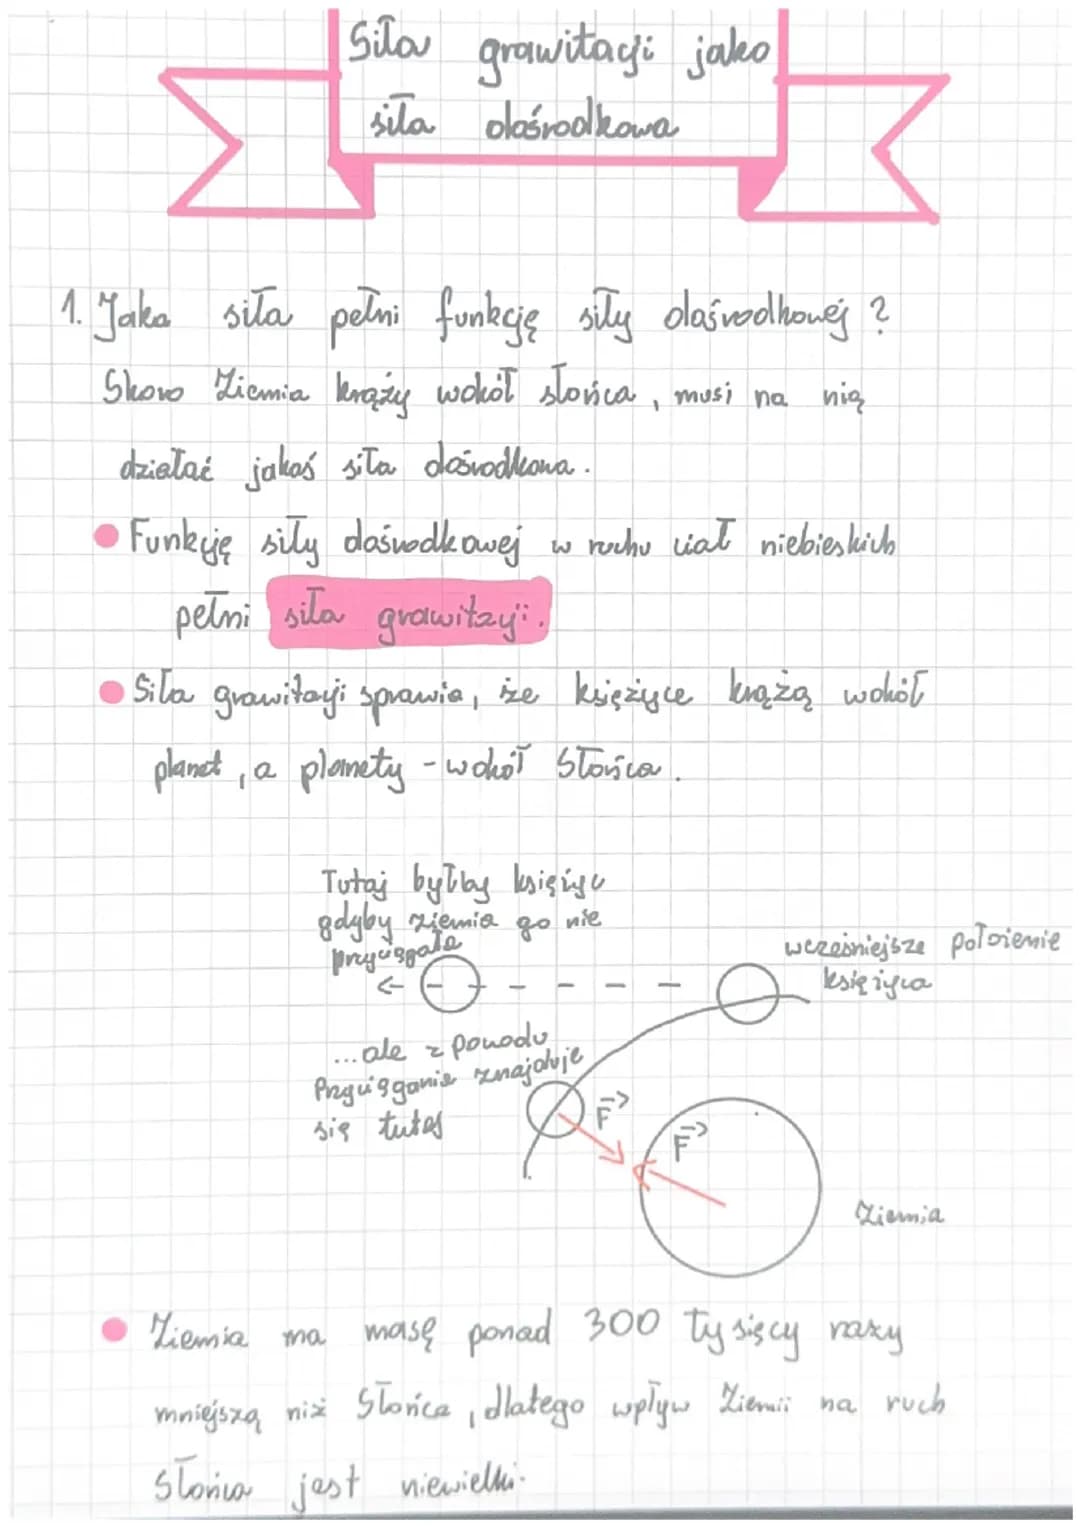 Siła grawitacji jako
siła dośrodkowa
1. Jaka siła pełni funkcję siły dośrodkowej ?
Skoro Ziemia krąży wokół słońca, musi na nią
działać jakaś siła dośrodkowa.
Funkcję siły dośrodkowej w ruchu ciał niebieskich
pełni siła grawitacyji.
Siła grawitacji sprawia, że księżyce krążą wokół
planet, a planety - wokół Słońca.
Tutaj byłby księżyc
gdyby ziemia go nie
przyciągała
wcześniejsze położenie
księżyca
...ale z powodu
Przyciągania znajduje
się tutaj
F
F
Ziemia
Ziemia ma masę ponad 300 tysięcy razy
mniejszą niż Słońca, dlatego wpływ Ziemii na ruch
Słońca jest niewielki.